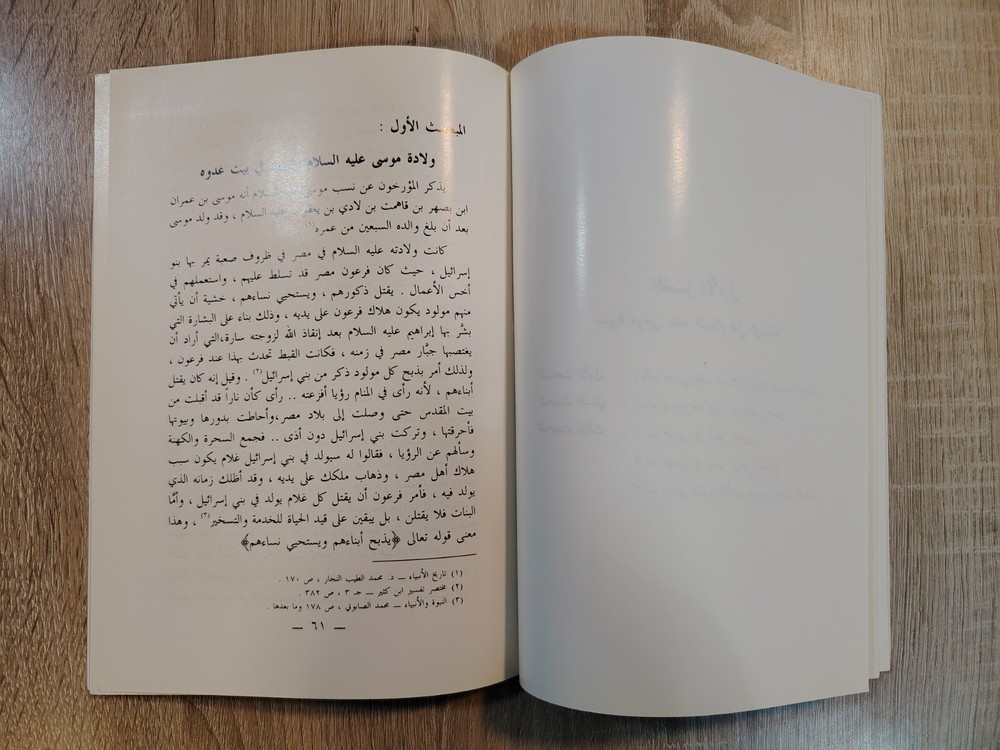 المبحث الأول :
ولادة موسى عليه السلام في بيت عدوه
يذكر المؤرخون عن نسب موسى السلام أنه موسى بن عمران
ابن يصهر بن قاهمت بن لادي بن عليه السلام ، وقد ولد موسى
بعد أن بلغ والده السبعين من عمره(١)
كانت ولادته عليه السلام في مصر في ظروف صعبة يمر بها بنو
إسرائيل ، حيث كان فرعون مصر قد تسلط عليهم ، واستعملهم في
أخس الأعمال . يقتل ذكورهم ، ويستحيي نساءهم ، خشية أن يأتي
منهم مولود يكون هلاك فرعون على يديه ، وذلك بناء على البشارة التي
بشَّر بها إبراهيم عليه السلام بعد إنقاذ الله لزوجته سارة،التي أراد أن
يغتصبها جبَّار مصر في زمنه ، فكانت القبط تحدث بهذا عند فرعون ،
ولذلك أمر بذبح كل مولود ذكر من بني إسرائيل(٢) . وقيل إنه كان يقتل
أبناءهم ، لأنه رأى في المنام رؤيا أفزعته .. رأى كأن ناراً قد أقبلت من
بيت المقدس حتى وصلت إلى بلاد مصر،وأحاطت بدورها وبيوتها
فأحرقتها ، وتركت بني إسرائيل دون أذى .. فجمع السحرة والكهنة
وسألهم عن الرؤيا ، فقالوا له سيولد في بني إسرائيل غلام يكون سبب
هلاك أهل مصر ، وذهاب ملكك على يديه ، وقد أظلك زمانه الذي
يولد فيه ، فأمر فرعون أن يقتل كل غلام يولد في بني إسرائيل ، وأمَّا
البنات فلا يقتلن ، بل يبقين على قيد الحياة للخدمة والتسخير(٣) ، وهذا
معنى قوله تعالى ﴿يذبح أبناءهم ويستحيي نساءهم﴾
(١) تاريخ الأنبياء ــ د. محمد الطيب النجار ، ص ١٧٠ .
(٢) مختصر تفسير ابن كثير ــ جـ ٣ ، ص ٣٨٢ .
(٣) النبوة والأنبياء ــ محمد الصابوني ، ص ١٧٨ وما بعدها .
ــ ٦١ ــ